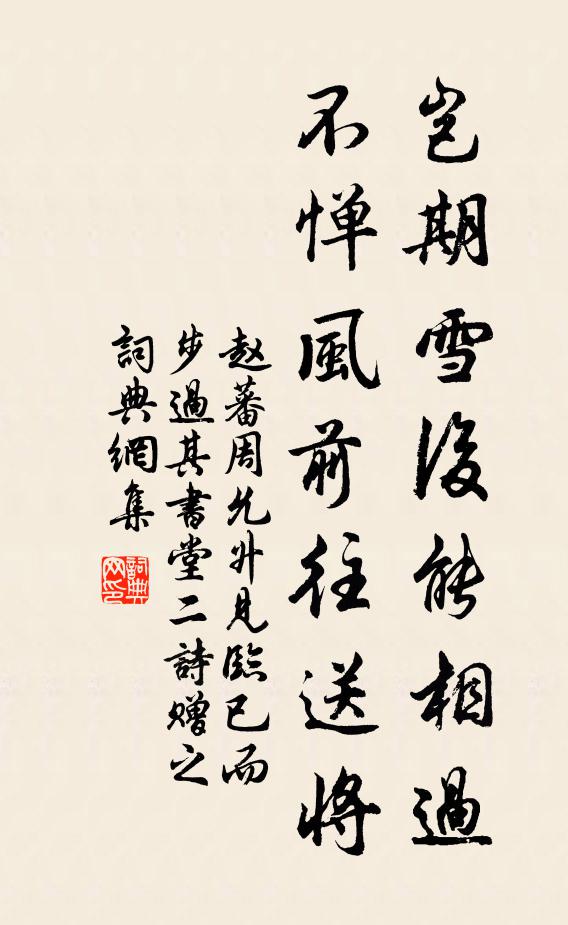 豈期雪後能相過
不憚風前往送將
赵蕃周允升見臨已而
步過其書堂二詩赠之
詞典網集
詞典网印